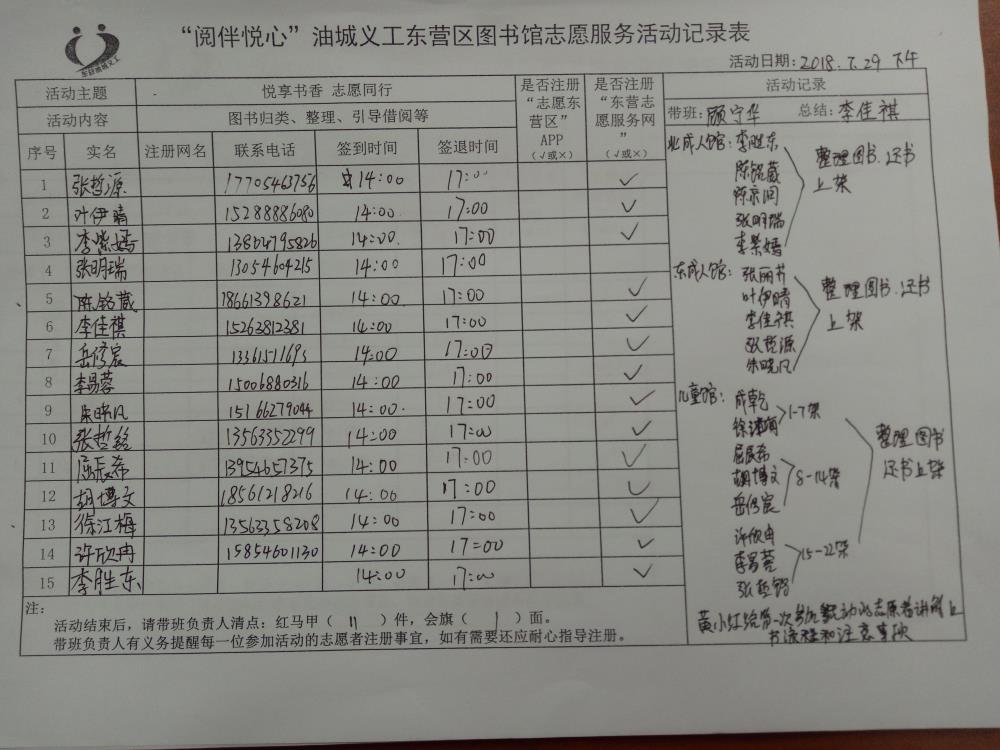 “阅伴悦心”油城义工东营区图书馆志愿服务活动记录表
活动日期：2018.7.29 下午
活动主题 悦享书香 志愿同行 是否注册“志愿东营区”APP（√或×） 是否注册“东营志愿服务网”（√或×） 活动记录
活动内容 图书归类、整理、引导借阅等
带班：顾守华 总结：李佳祺
序号 实名 注册网名 联系电话 签到时间 签退时间
1 张哲源 17705463756 14:00 17:00 √
2 叶伊晴 15288886080 14:00 17:00 √
3 李紫嫣 13864795826 14:00 17:00 √
4 张明瑞 13054604215 14:00 17:00
5 陈铭葳 18661398621 14:00 17:00 √
6 李佳祺 15263812381 14:00 17:00 √
7 岳修宸 13361511693 14:00 17:00 √
8 李易蓉 15006880316 14:00 17:00 √
9 朱晓凡 15166279044 14:00 17:00 √
10 张哲铭 13563352299 14:00 17:00 √
11 屈辰希 13954657375 14:00 17:00 √
12 胡博文 18561218216 14:00 17:00 √
13 徐江梅 13563358208 14:00 17:00 √
14 许欣冉 15854601130 14:00 17:00 √
15 李胜东 14:00 17:00 √
北成人馆：李胜东
陈铭葳
张明瑞
李紫嫣
整理图书.还书
上架
东成人馆：张丽芹
叶伊晴
李佳祺
张哲源
朱晓凡
整理图书.还书
上架
儿童馆：成乾
1-7架
屈辰希
胡博文
岳修宸
8-14架
许欣冉
李易蓉
张哲铭
15-22架
整理图书
还书上架
黄小红给第一次参加活动的志愿者讲解上
书流程和注意事项
注：
活动结束后，请带班负责人清点：红马甲（11）件，会旗（1）面。
带班负责人有义务提醒每一位参加活动的志愿者注册事宜，如有需要还应耐心指导注册。